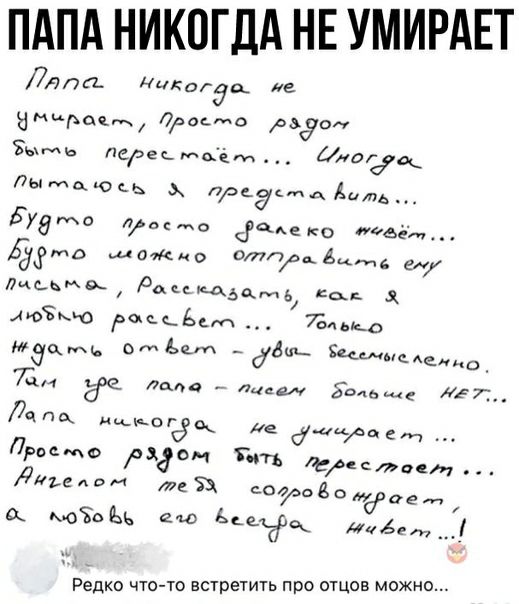 ПАПА НИКОГДА НЕ УМИРАЕТ
Папа никогда не
умирает, просто рядом
быть перестаёт... Иногда
пытаюсь я представить...
Будто просто далеко живёт...
Будто можно отправить ему
письма, Рассказать, как я
люблю рассвет... Только
ждать ответ - увы бессмысленно.
Там где папа - писем больше НЕТ...
Папа никогда не умирает...
Просто рядом быть перестает...
Ангелом тебя сопровождает,
а любовь его всегда живет...!
Редко что-то встретить про отцов можно...